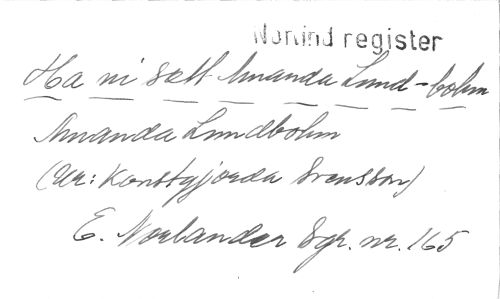 Norlind register
Ha ni sett Amanda Lund-bohm
Amanda Lundbohm
(Ur: Konstgjorda Svensson)
E. Norlander Sgr. nr. 165